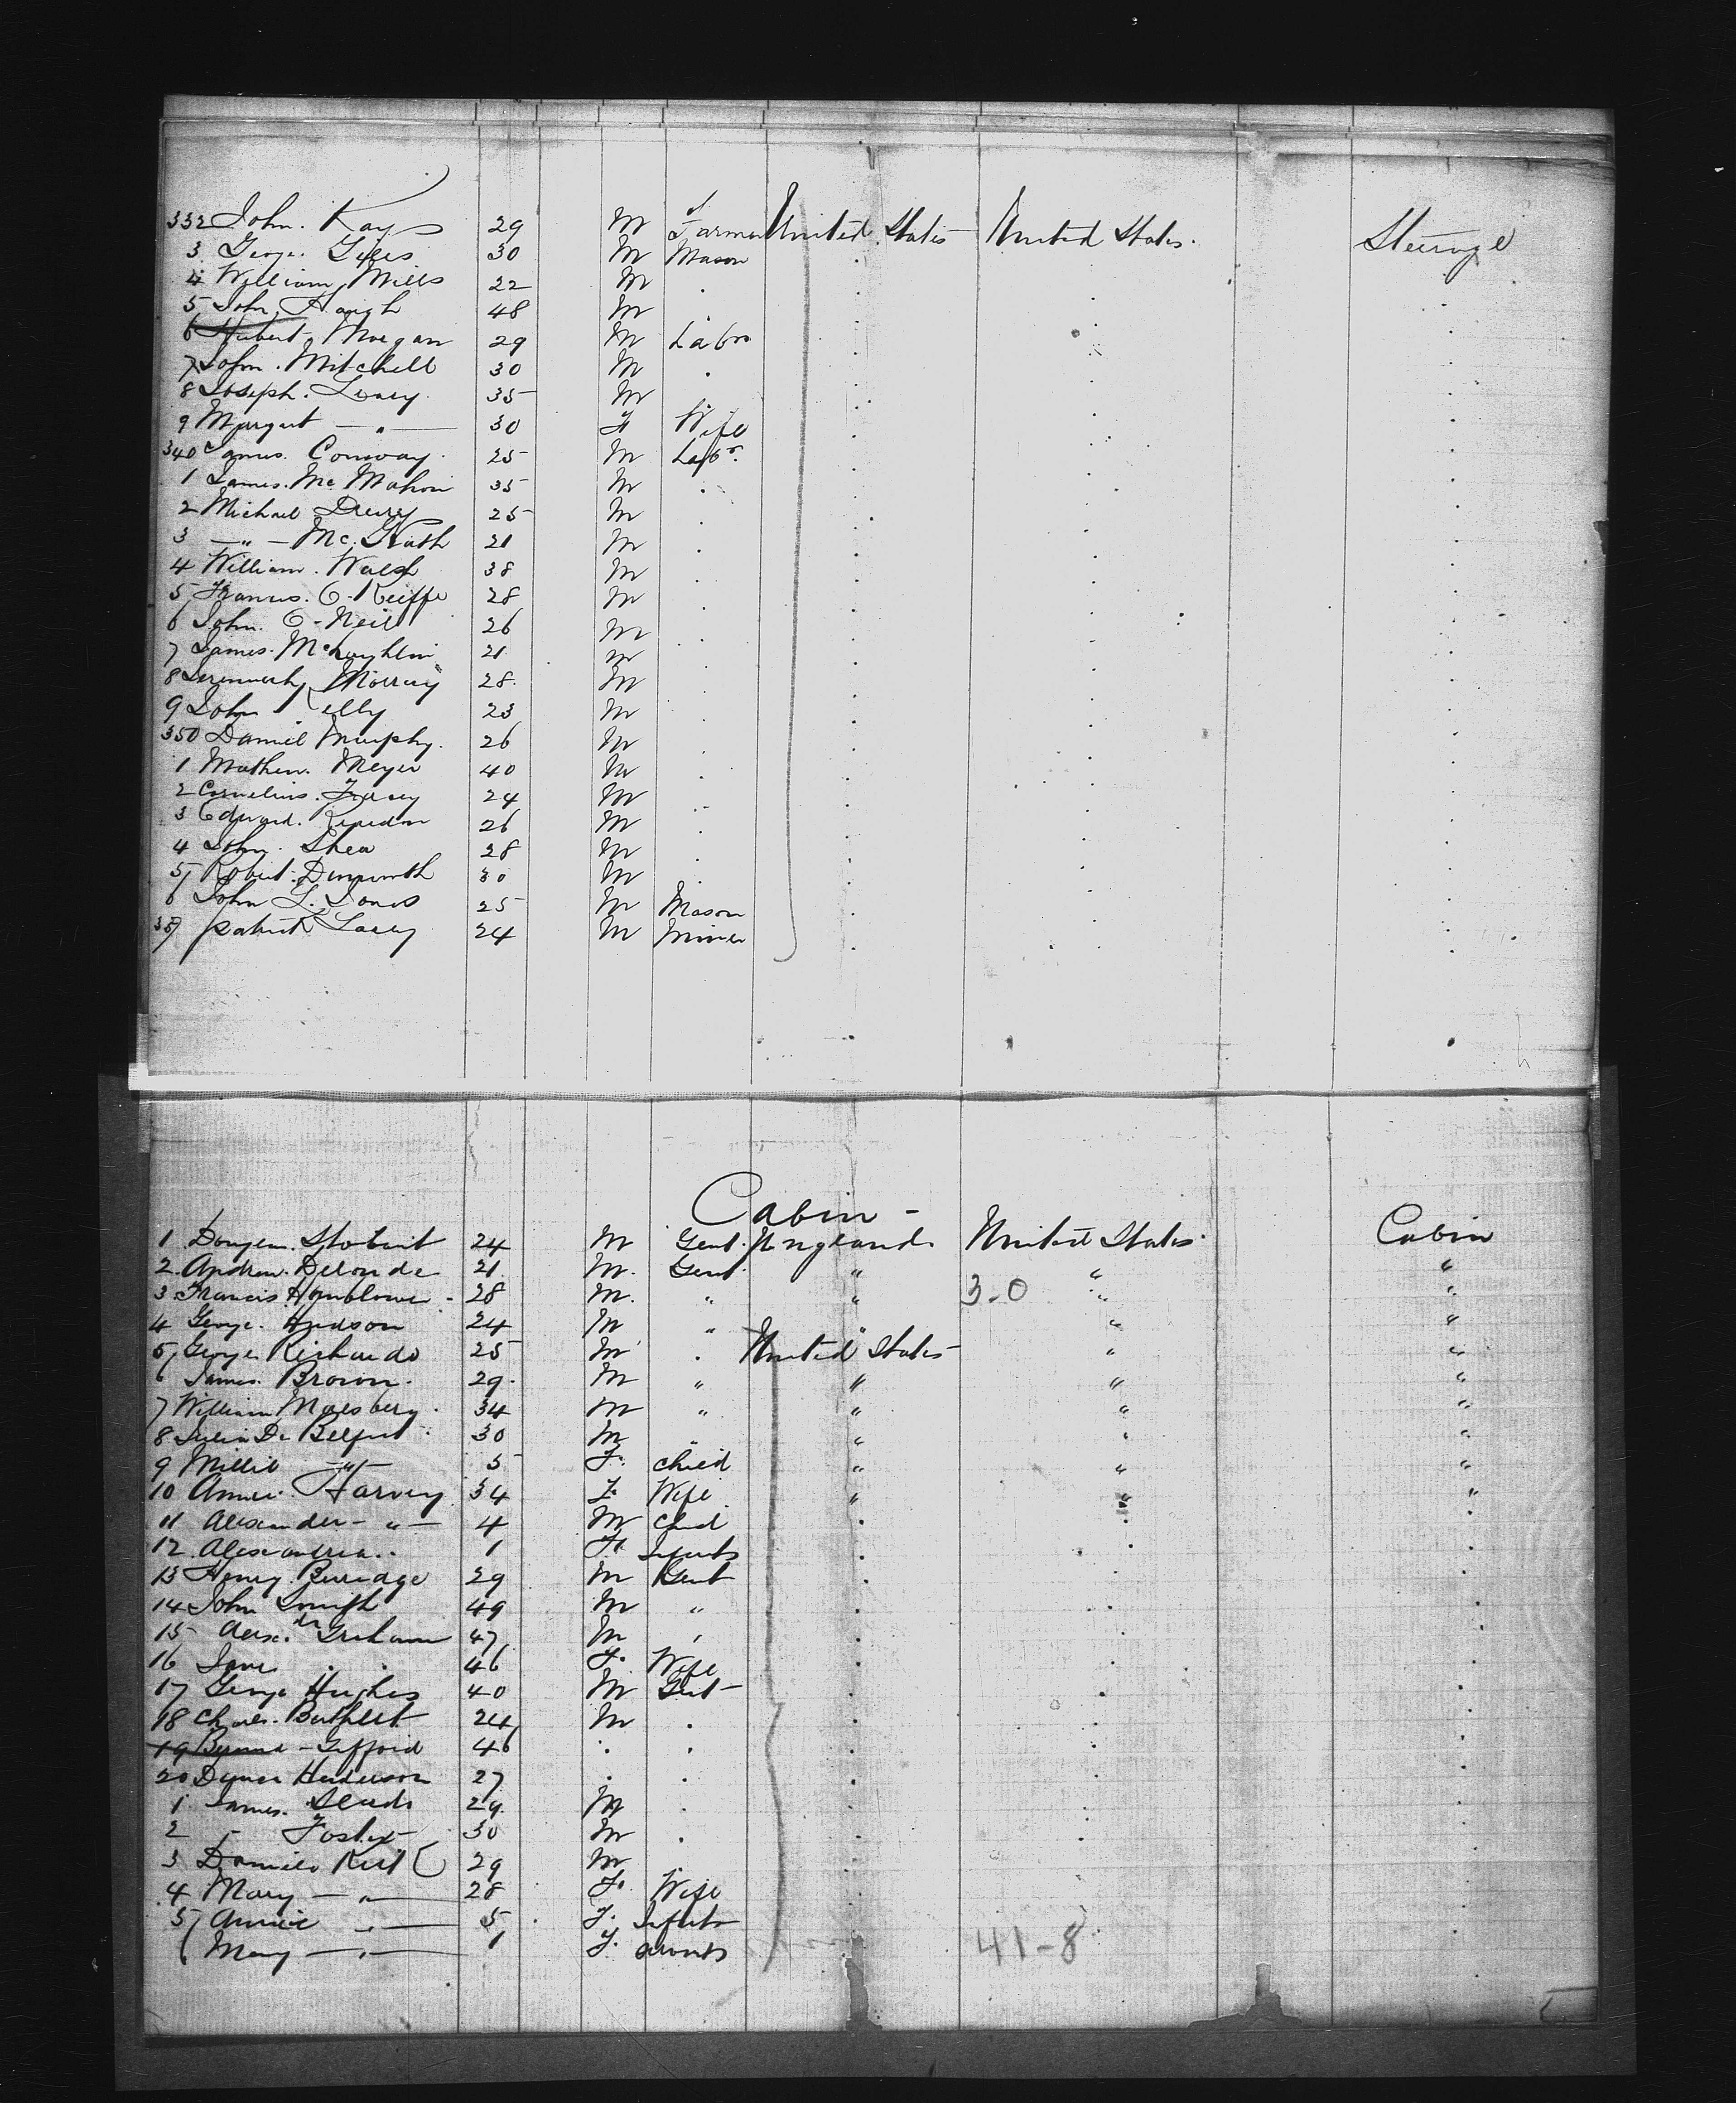 332 John. Kays 29 M Farmer United States United States. Steerage
3 George. Gyles 30 M Mason
4 William Mills 22 M
5 John Haigh 48 M
6 Hubert Morgan 29 M Labor
7 John. Mitchell 30 M
8 Joseph. 35 M
9 Margart — " — 30 F Wife
340 James. Conway. 25 M Labr.
1 James. Mc Mahon 35 M
2 Michael Drury 25 M
3 — " — Mc. Grath 21 M
4 William. Walsh 38 M
5 Francis. O-Keiffe 28 M
6 John. O-Neill 26 M
7 James. McLoughlin 21 M
8 Murray 28. M
9 John Kelly 23 M
350 Daniel Murphy. 26 M
1 Mathew. Meyer 40 M
2 Cornelius. 24 M
3 Edward. 26 M
4 John. Shea 28 M
5 Robert. 30 M
6 John L. Jones 25 M Mason
357 Patrick Lacey 24 M Miner
Cabin -
1 Stobart 24 M Gent. England. United States. Cabin
2. Andrew. Delonde 21 M. Gent. " " "
3 Francis. Hornblower - 28 M. " " 3-0 " "
4 George. Hudson 24 M " " " "
5 George Richards 25 M . United States " "
6 James. Brown. 29. M " " " "
7 William Malesbery. 34 M " " " "
8 De Belfort 30 M " " "
9 Millie — " — 5 F. Child " " "
10 Annie. Harvey 34 F. Wife " " "
11 Alexander - " — 4 M Child
12. Alexandria.. 1 F. Infants
13 Henry. Burridge 29 M Gent
14 John Smith 49 M "
15 Alexdr Graham 47 M "
16 Jane . . 46 F. Wife
17 George Hughes 40 M Gent
18 Chales. 24 M
19 - Gifford 46
20 Henderson 27
1 James. 29. M
2 " Foster 30 M
3 Daniel Kirt 29 M
4 Mary — " — 28 F. Wife
5 Annie — " — 5 F. Infants
6 Mary — " — 1 F. 41-8